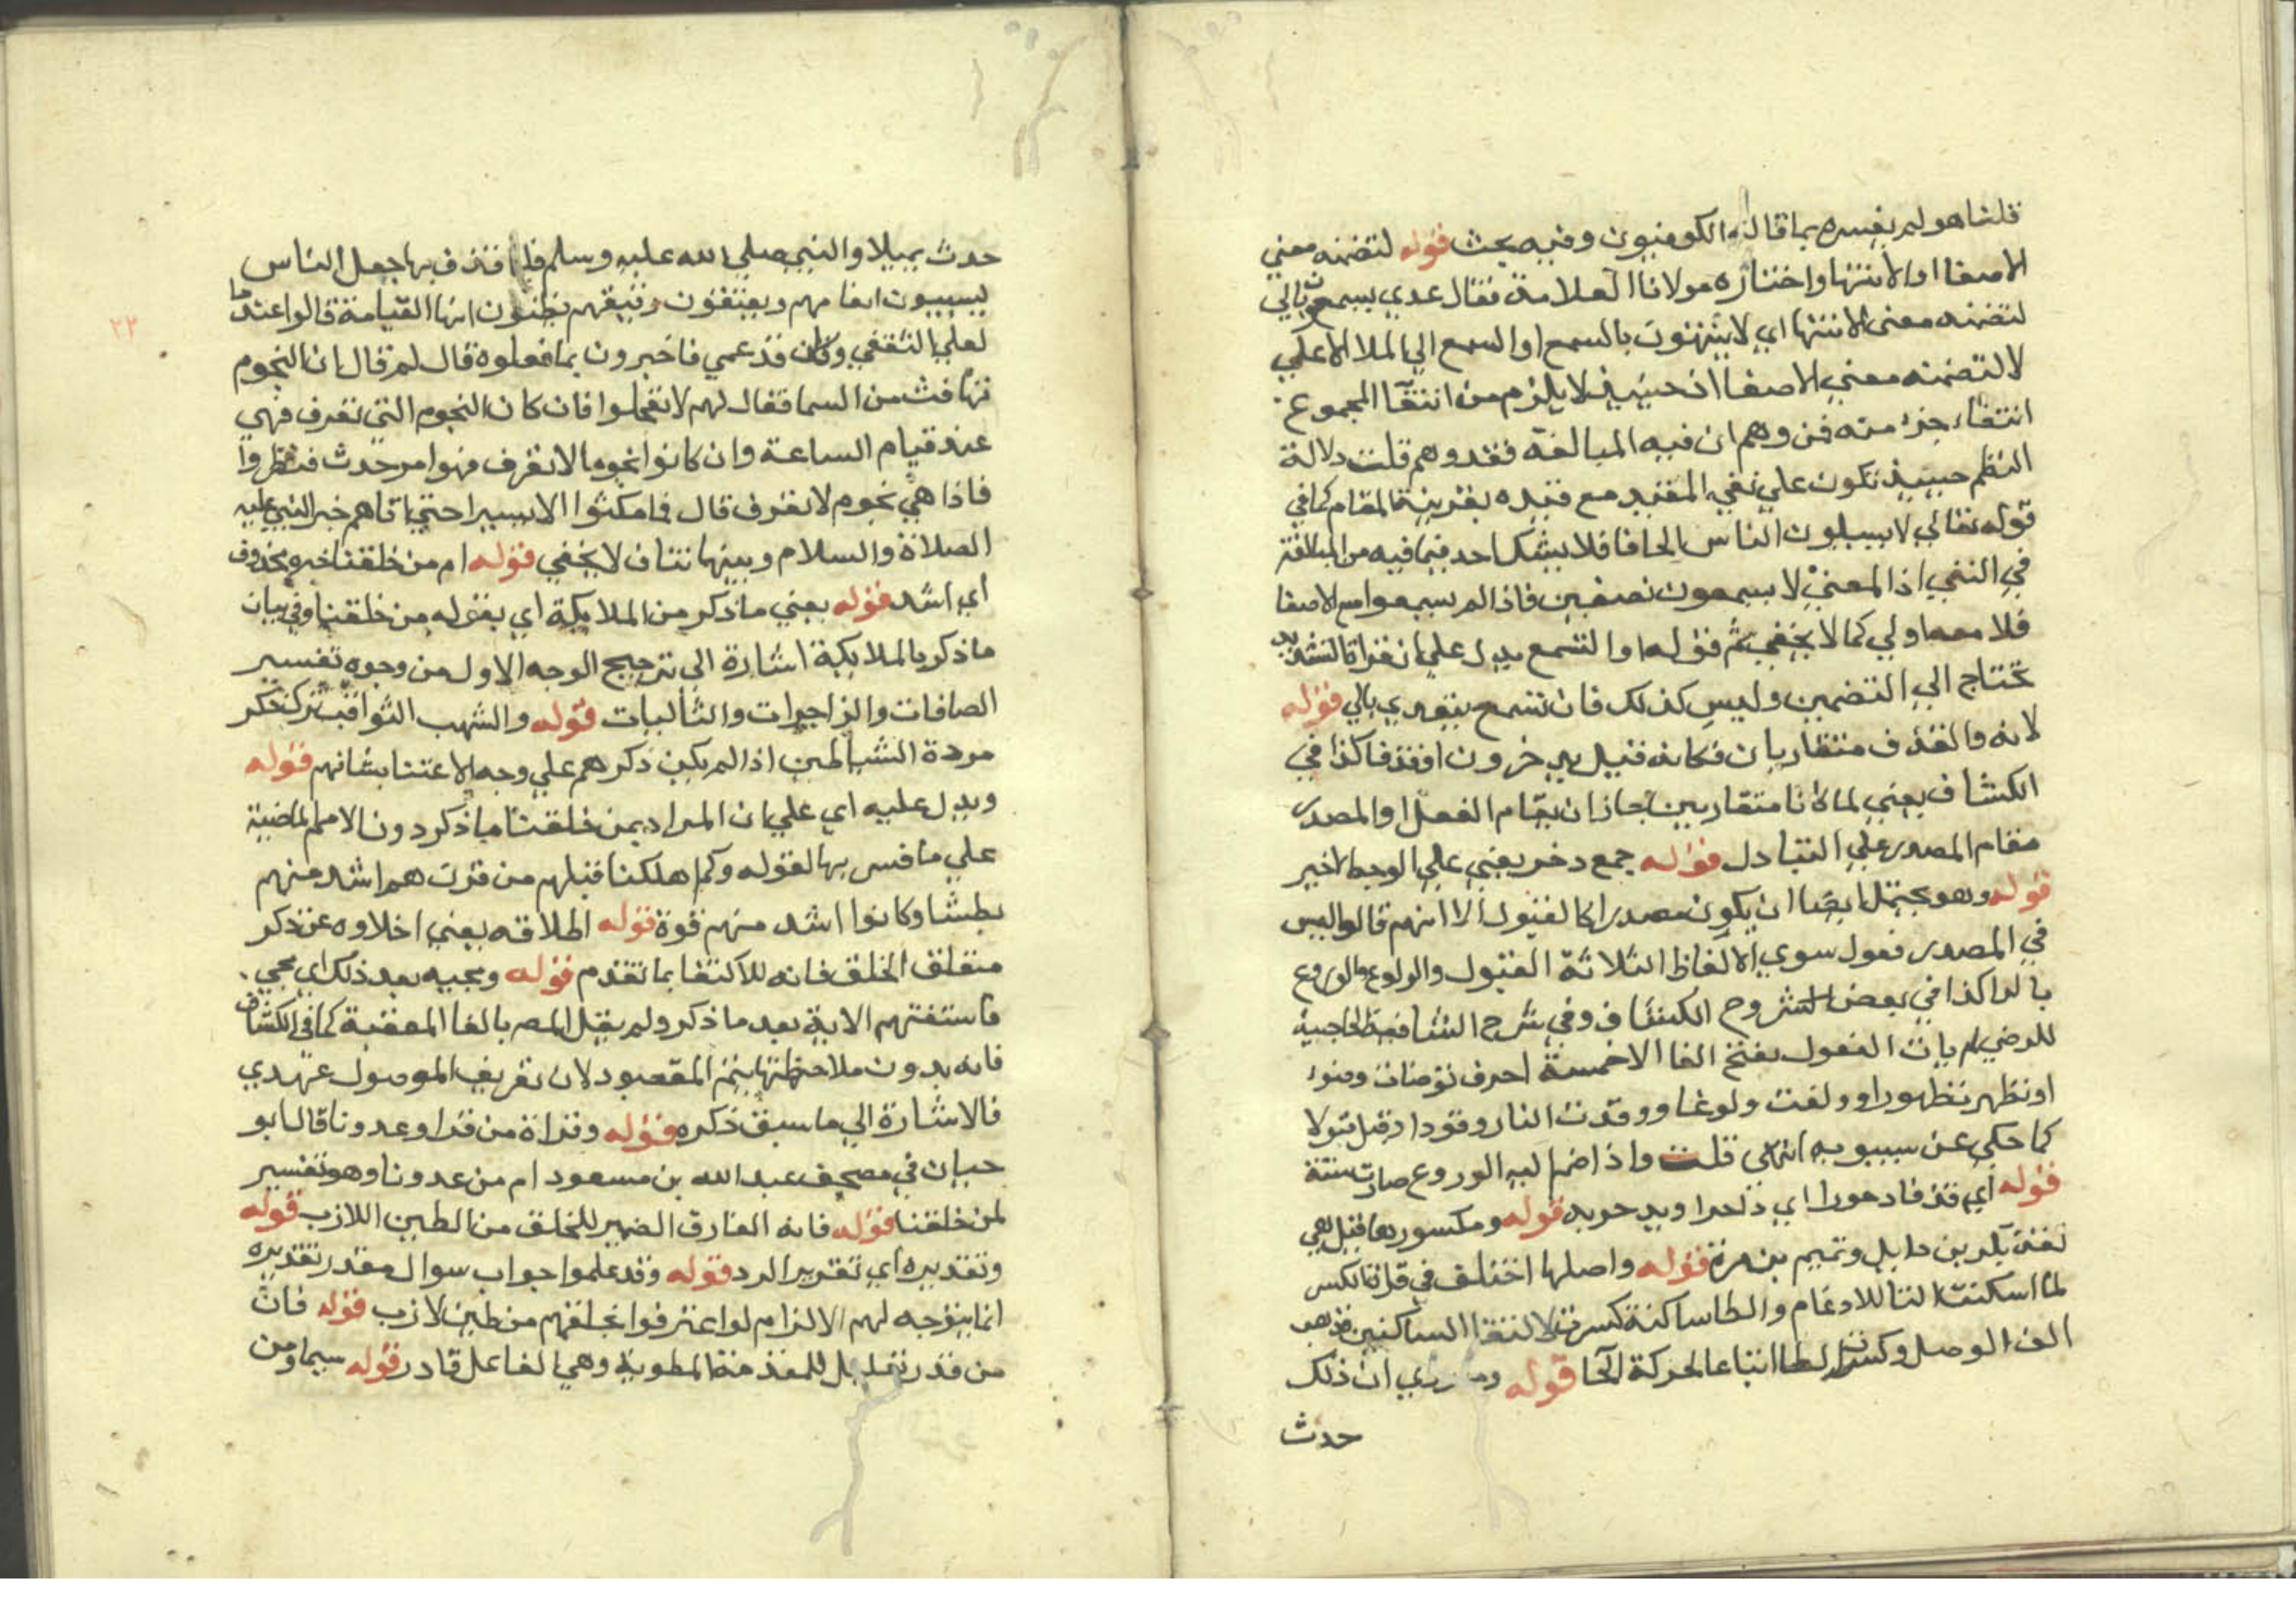 قلنا هو لم يفسره بما قاله الكوفيون وفيه بحث قوله لتضمنه معنى
الاصغا او الانتها واختاره مولانا العلامة فقال عدي يسمعون بالي
لتضمنه معنى الانتها اي لا ينتهون بالسمع او السمع الي الملا الاعلي
لا لتضمنه معني الاصغا اذ حينيذ لا يلزم من انتفآ المجموع
انتفاء جزء منه فمن وهم ان فيه المبالغة فقد وهم قلت دلالة
النظم حينيذ تكون علي نفي المقيد مع قيده بقرينة المقام كما في
قوله تعالي لا يسيلون الناس الحافا فلا يشك احد فيما فيه من المبالغة
في النفي اذ المعني لا يسمعون نصغين فاذا لم يسمعوا مع الاصغا
فلا معه اولي كما لا يخفي ثم قوله او التسمع يدل علي ان قراة التشديد
تحتاج الي التضمين وليس كذلك فان تسمع يتعدي بالي قوله
لانه والقذف متقاربان فكانه قيل يدخرون او قذفا كذا في
الكشاف يعني لما كانا متقاربين جاز ان يقام الفعل او المصدر
مقام المصدر علي التبادل قوله جمع دخر يعني علي الوجه الاخير
قوله وهو يحتمل ايضا ان يكون مصدرا كالقبول الا انهم قالوا ليس
في المصدر فعول سوي الالفاظ الثلاثة القبول والولوع والوروع
بالرا كذا في بعض الشروح الكشاف وفي شرح الشافية الحاجبية
للرضي لم يات الفعول بفتح الفا الا خمسة احرف توضات وضوء
او تطهرت طهورا وولغت ولوغا ووقدت النار وقودا وقبل قبولا
كما حكي عن سيبويه انتهي قلت واذا ضم اليه الوروع صارت ستة
قوله اي قذفا دحورا اي داحرا ويدحر به قوله ومكسورها قيل هي
لغة بكر بن وايل وتميم بن مرة قوله واصلها اختلف في قراة الكسر
لما اسكنت التا للادغام والطا ساكنة كسرت لالتقا الساكنين فذهب
الف الوصل وكسرت الطا اتباعا لحركة الخا قوله وما روي ان ذلك
حدث
حدث بميلاد النبي صلي الله عليه وسلم فلما قذف بها جعل الناس
يسيبون انعامهم ويعتقون رقيقهم يظنون انها القيامة قالوا عبد يا
ليل الثقفي وكان قد عمي فاخبرون بما فعلوه قال لم قال ان النجوم
تهافت من السما فقال لهم لا تعجلوا فان كان النجوم التي تعرف فهي
عند قيام الساعة وان كانوا نجوما لا تعرف فهو امر حدث فنظروا
فاذا هي نجوم لا تعرف قال فامكثوا الا يسيرا حتي اتاهم خبر النبي عليه
الصلاة والسلام وبينها تناف لا يخفي قوله ام من خلقنا خبره محذوف
اي اشد قوله يعني ما ذكر من الملايكة اي بقوله من خلقنا وفي بيان
ما ذكر بالملايكة اشارة الي ترجيح الوجه الاول من وجوه تفسير
الصافات والزاجرات والتاليات قوله والشهب الثواقب ترك ذكر
مردة الشياطين اذا لم يكن ذكرهم علي وجه الاعتنا بشانهم قوله
ويدل عليه اي علي ان المراد بمن خلقنا ما ذكر دون الامم الماضية
علي ما فسر بها لقوله وكم اهلكنا قبلهم من قرن هم اشد منهم
بطشا وكانوا اشد منهم قوة قوله اطلاقه يعني اخلاوه عن ذكر
متعلق الخلق فانه للاكتفا بما تقدم قوله ومجيه بعد ذلك اي مجي
فاستفتهم الاية بعد ما ذكر ولم يقل المص بالفا المعقبة كما في الكشاف
فانه بدون ملاحظتها يتم المقصود لان تعريف الموصول عهدي
فالاشارة الي ما سبق ذكره قوله وقراة من قرا وعدونا قال ابو
حيان في مصحف عبد الله بن مسعود ام من عددنا وهو تفسير
لمن خلقنا قوله فانه الفارق الضمير للخلق من الطين اللازب قوله
وتقديره اي تقرير الرد قوله وقد علموا جواب سوال مقدر تقديره
انما يتوجه لهم الالزام لو اعترفوا بخلقهم من طين لازب قوله فان
من قدر تعليل للمقدمة المطوية وهي الفاعل قادر قوله سيما ومن
٢٢